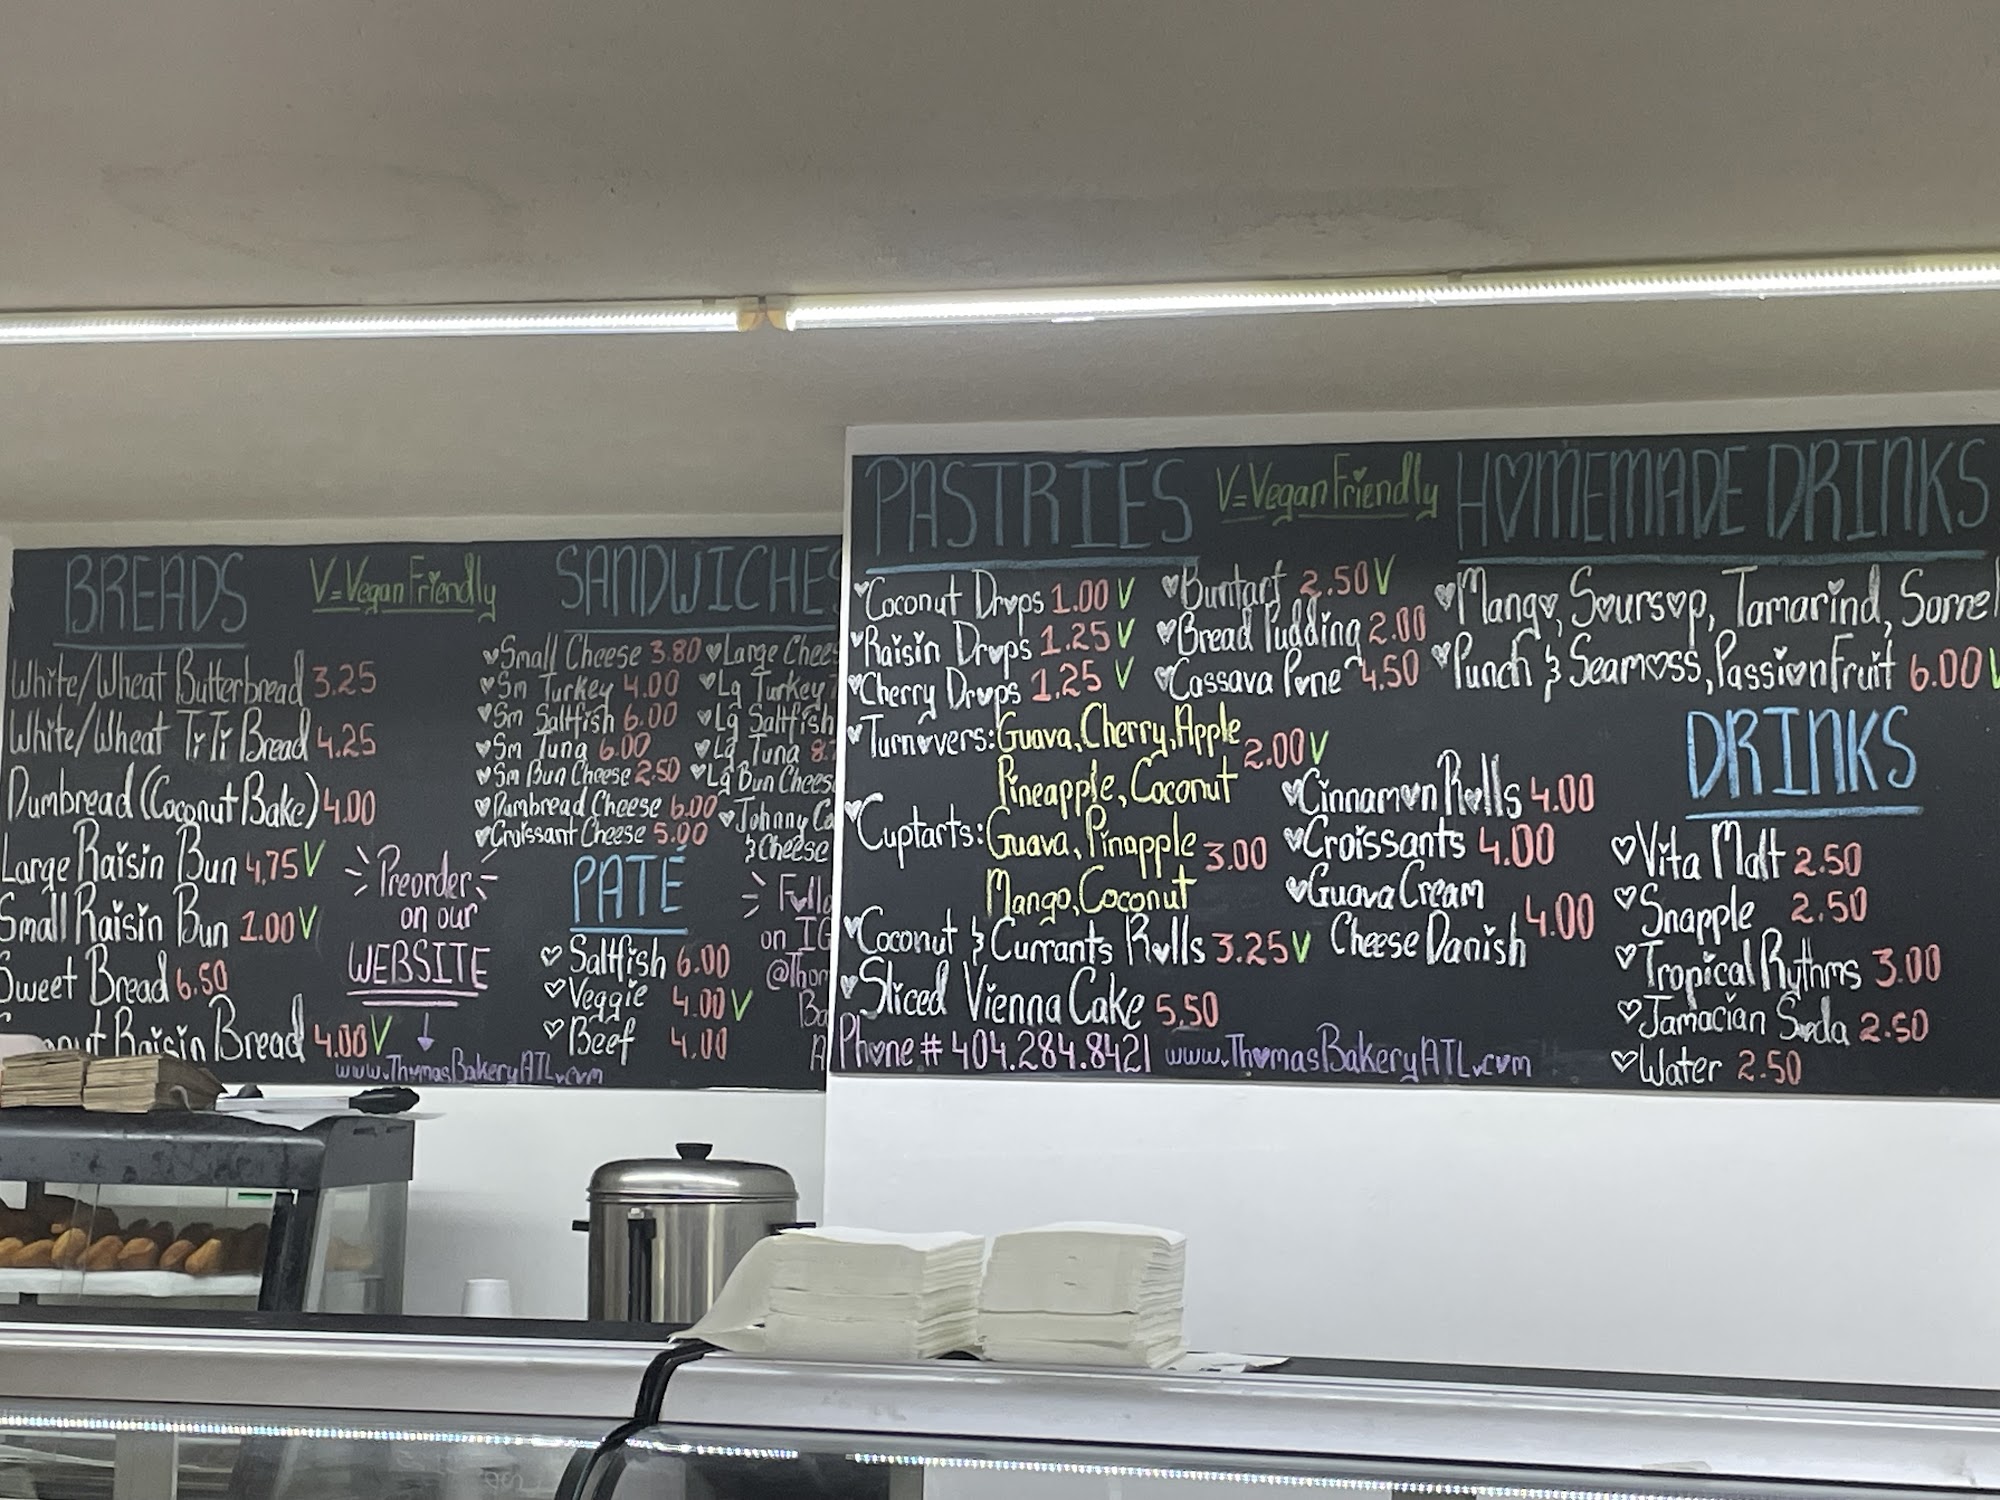 BREADS
V=Vegan Friendly
White/Wheat Butterbread 3.25
White/Wheat TiTi Bread 4.25
Dumbread (Coconut Bake) 4.00
Large Raisin Bun 4.75 V
Small Raisin Bun 1.00 V
Sweet Bread 6.50
Raisin Bread 4.00 V
Preorder
on our
WEBSITE
www.ThomasBakeryATL.com
SANDWICHES
Small Cheese 3.80
Sm Turkey 4.00
Sm Saltfish 6.00
Sm Tuna 6.00
Sm Bun Cheese 2.50
Dumbread Cheese 6.00
Croissant Cheese 5.00
Large Chees
Lg Turkey
Lg Saltfish
Lg Tuna 8.
Lg Bun Chees
Johnny Ca
& Cheese
PATÉ
Saltfish 6.00
Veggie 4.00 V
Beef 4.00
Follo
on IG
@Thom
Ba
A
PASTRIES
V=Vegan Friendly
Coconut Drops 1.00 V
Raisin Drops 1.25 V
Cherry Drops 1.25 V
Turnovers: Guava, Cherry, Apple
Pineapple, Coconut 2.00 V
Cuptarts: Guava, Pinapple
Mango, Coconut 3.00
Coconut & Currants Rolls 3.25 V
Sliced Vienna Cake 5.50
Buntart 2.50 V
Bread Pudding 2.00
Cassava Pone 4.50
Cinnamon Rolls 4.00
Croissants 4.00
Guava Cream
Cheese Danish 4.00
Phone # 404.284.8421 www.ThomasBakeryATL.com
HOMEMADE DRINKS
Mango, Soursop, Tamarind, Sorrel
Punch & Seamoss, Passion Fruit 6.00 V
DRINKS
Vita Malt 2.50
Snapple 2.50
Tropical Rythms 3.00
Jamacian Soda 2.50
Water 2.50